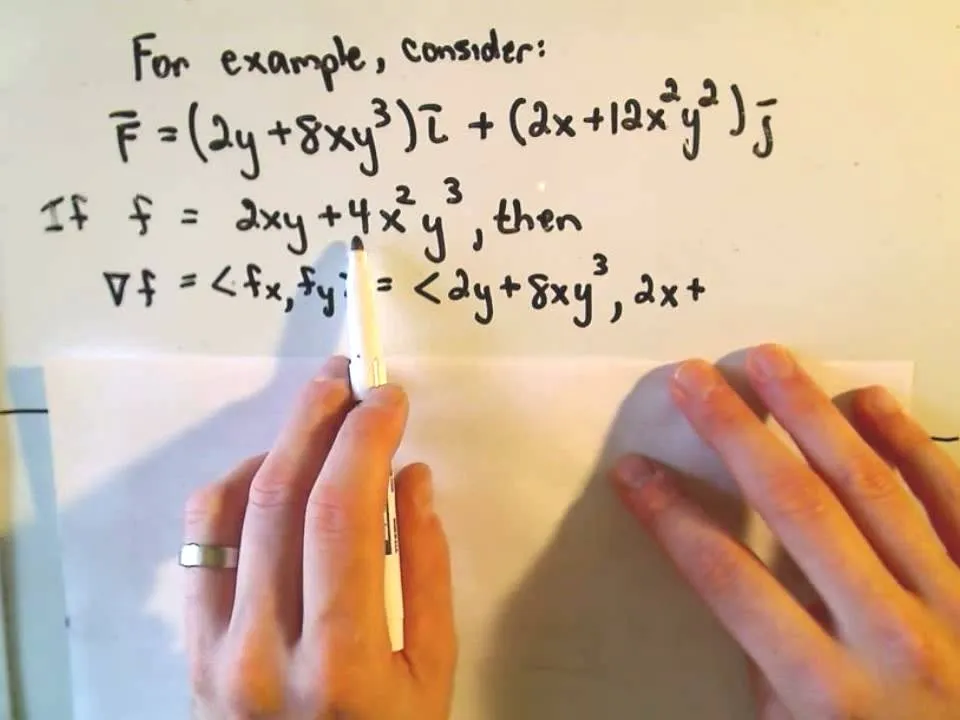 For example, consider:
F̄ = (2y + 8xy³) ī + (2x + 12x²y²) j̄
If f = 2xy + 4x²y³, then
∇f = <fx, fy> = <2y + 8xy³, 2x +